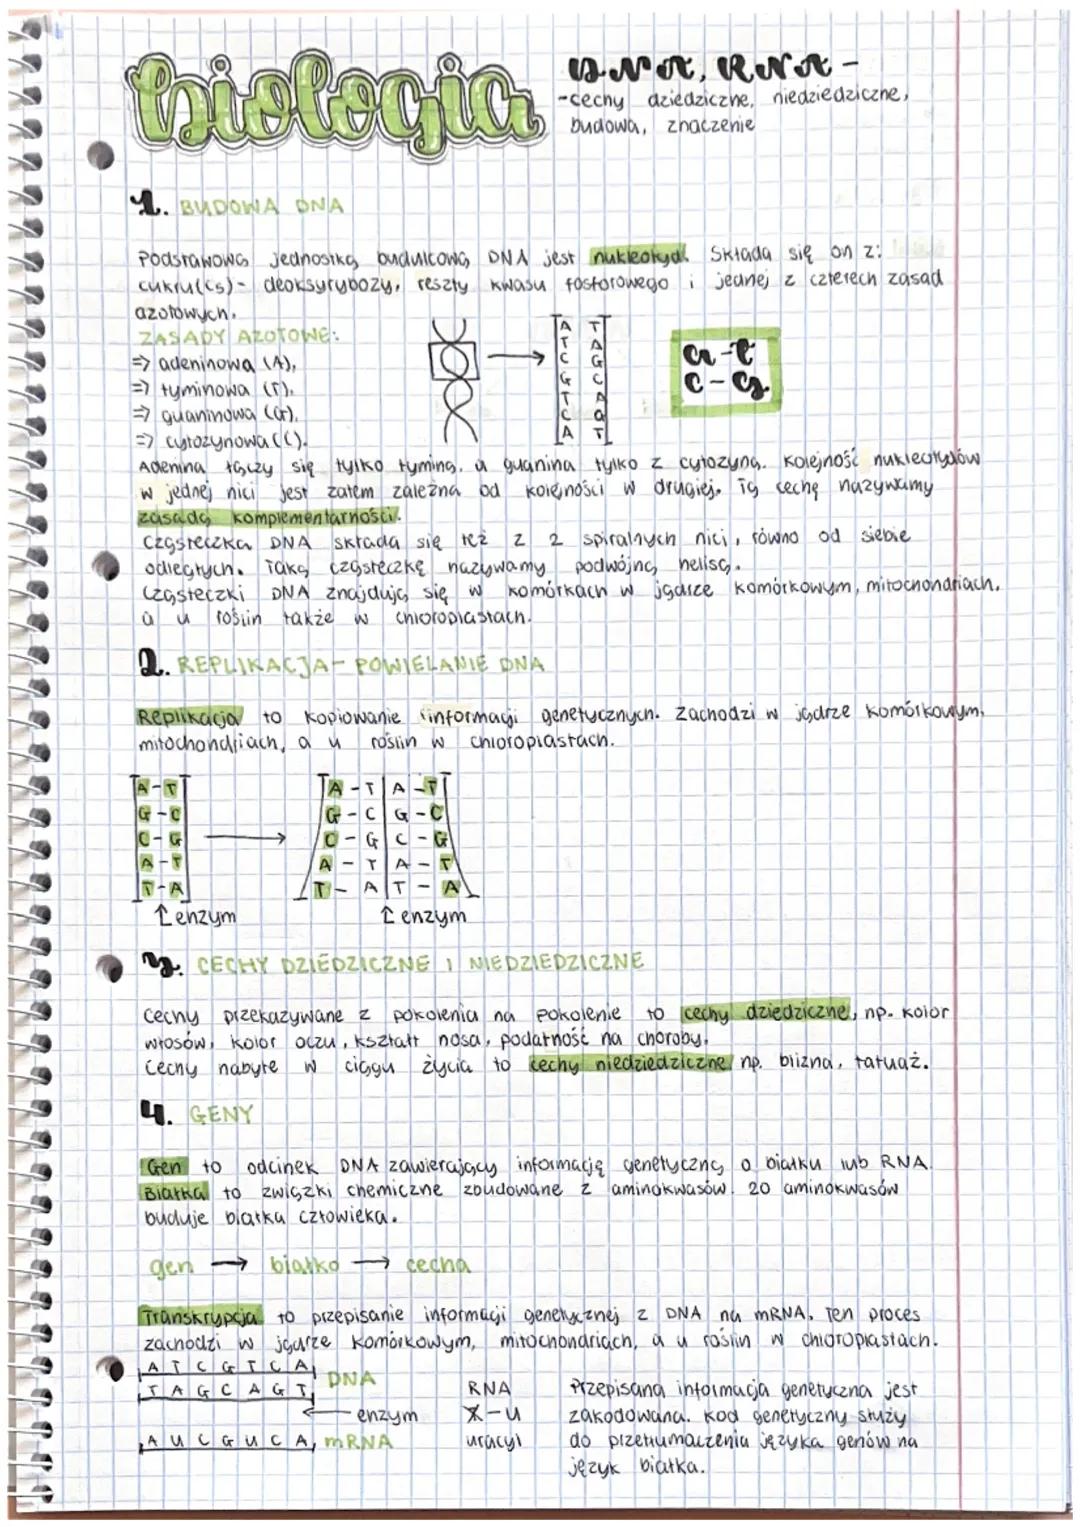 biologia
DNA, RNA -
-cechy dziedziczne, niedziedziczne,
budowa, znaczenie
1. BUDOWA DNA
Podstawową jednostką budulcową DNA jest nukleotyd. Składa się on z:
cukru(C5)- deoksyrybozy, reszty kwasu fosforowego i jednej z czterech zasad
azotowych.
ZASADY AZOTOWE:
=> adeninowa (A),
=> tyminowa (T),
=> guaninowa (G),
=> cytozynowa (C).
A T
T A
C G
G C
T A
C G
A T
a-t
c-g
Adenina łączy się tylko tyminą, a guanina tylko z cytozyną. Kolejność nukleotydów
w jednej nici jest zatem zależna od kolejności w drugiej. Tą cechę nazywamy
zasadą komplementarności.
Cząsteczka DNA składa się też z 2 spiralnych nici, równo od siebie
odległych. Taką cząsteczkę nazywamy podwójną helisą.
Cząsteczki DNA znajdują się w komórkach w jądrze komórkowym, mitochondriach,
a u roślin także w chloroplastach.
2. REPLIKACJA- POWIELANIE DNA
Replikacja to kopiowanie informacji genetycznych. Zachodzi w jądrze komórkowym,
mitochondriach, a u roślin w chloroplastach.
A-T A-T A-T
G-C G-C G-C
C-G C-G C-G
A-T A-T A-T
T-A T-A T-A
enzym enzym
3. CECHY DZIEDZICZNE I NIEDZIEDZICZNE
Cechy przekazywane z pokolenia na pokolenie to cechy dziedziczne, np. kolor
włosów, kolor oczu, kształt nosa, podatność na choroby.
Cechy nabyte w ciągu życia to cechy niedziedziczne np. blizna, tatuaż.
4. GENY
Gen to odcinek DNA zawierający informację genetyczną o białku lub RNA.
Białka to związki chemiczne zbudowane z aminokwasów. 20 aminokwasów
buduje białka człowieka.
gen → białko → cecha
Transkrypcja to przepisanie informacji genetycznej z DNA na mRNA. Ten proces
zachodzi w jądrze komórkowym, mitochondriach, a u roślin w chloroplastach.
A T C G T C A
T A G C A G T DNA
enzym
A U C G U C A mRNA
RNA
-U
uracyl
Przepisana informacja genetyczna jest
zakodowana. Kod genetyczny służy
do przetłumaczenia języka genów na
język białka.